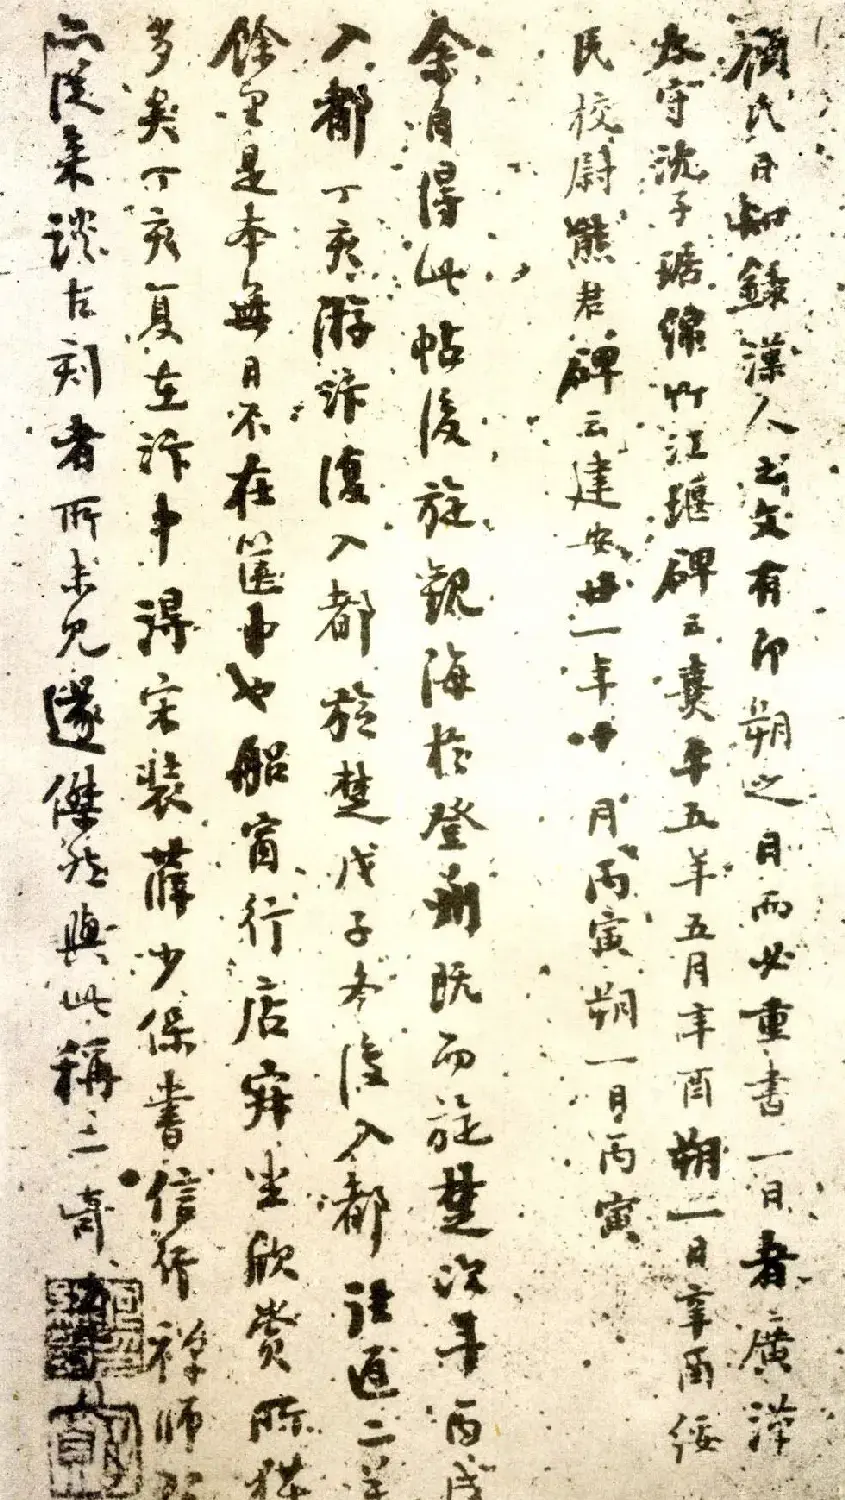 顧氏日知錄漢人之文有即朔之日而必重書一日者廣漢
太守沈子琚緜竹江堰碑云熹平五年五月辛酉朔一日辛酉綏
民校尉熊君碑云建安廿一年十一月丙寅朔一日丙寅
余自得此帖後旋觀海於登州既而旋楚次年丙戌
入都丁亥游汴復入都旋楚戊子冬復入都往返二萬
餘里是本無日不在篋中也船窗行店寂坐欣賞所獲
多矣丁亥夏在汴中得宋裝薛少保書信行禪師碑
亦從來談古刻者所未見遂傑然與此稱二奇